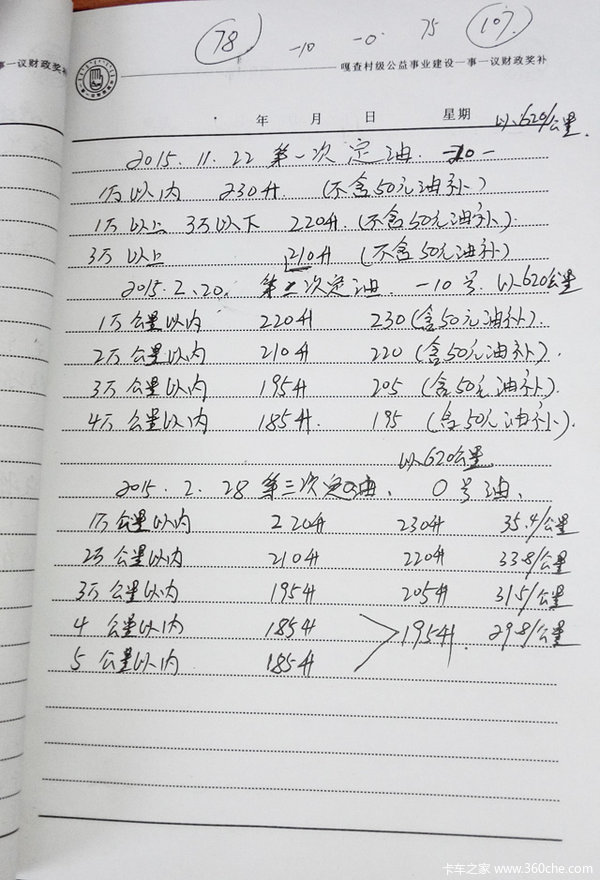 78 -10 -0 75 107
事一议财政奖补
嘎查村级公益事业建设一事一议财政奖补
年 月 日 星期 以620/公里
2015.11.22 第一次定油. -10-
1万以内 230升 (不含50元油补)
1万以上 3万以下 220升 (不含50元油补).
3万以上 210升 (不含50元油补)
2015.2.20. 第二次定油. -10号. 以620公里
1万公里以内 220升 230(含50元油补).
2万公里以内 210升 220 (含50元油补).
3万公里以内 195升 205 (含50元油补).
4万公里以内 185升. 195 (含50元油补).
以620公里
2015.2.28 第三次定油、 0号油、
1万公里以内 220升 230升 35.4/公里
2万公里以内 210升 220升 33.8/公里
3万公里以内 195升 205升 31.5/公里
4 公里以内 185升 195升. 29.8/公里
5 公里以内 185升
卡车之家 www.360che.com